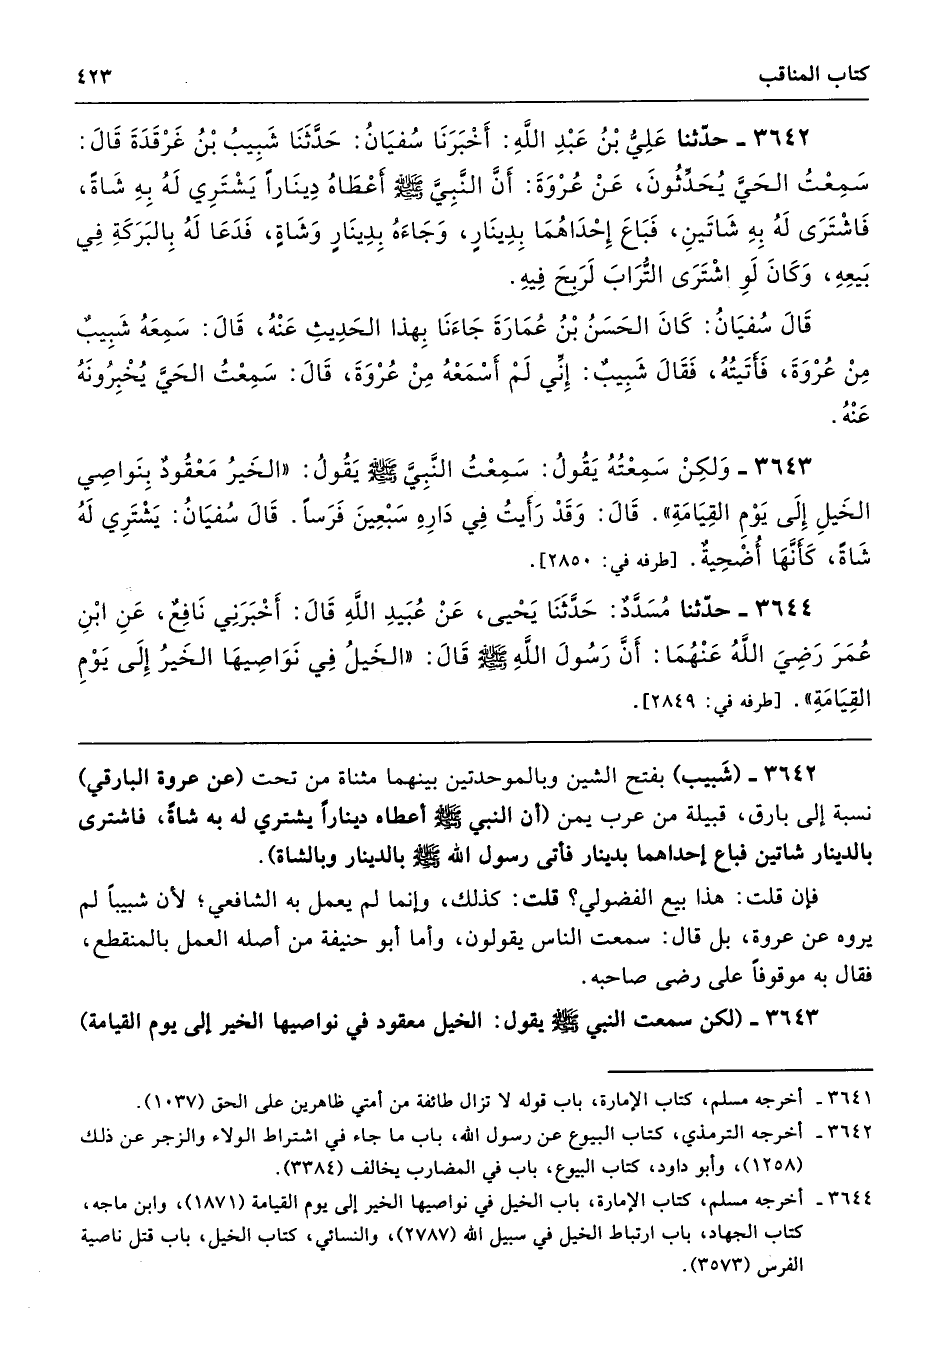 كتاب المناقب ٤٢٣
٣٦٤٢ ـ حدّثنا عَلِيُّ بْنُ عَبْدِ اللَّهِ: أَخْبَرَنَا سُفيَانُ: حَدَّثَنَا شَبِيبُ بْنُ غَرْقَدَةَ قَالَ:
سَمِعْتُ الحَيَّ يُحَدِّثُونَ، عَنْ عُرْوَةَ: أَنَّ النَّبِيَّ ﷺ أَعْطَاهُ دِينَاراً يَشْتَرِي لَهُ بِهِ شَاةً،
فَاشْتَرَى لَهُ بِهِ شَاتَينِ، فَبَاعَ إِحْدَاهُمَا بِدِينَارٍ، وَجَاءَهُ بِدِينَارٍ وَشَاةٍ، فَدَعَا لَهُ بِالبَرَكَةِ فِي
بَيعِهِ، وَكَانَ لَوِ اشْتَرَى التُّرَابَ لَرَبِحَ فِيهِ.
قَالَ سُفيَانُ: كَانَ الحَسَنُ بْنُ عُمَارَةَ جَاءَنَا بِهذا الحَدِيثِ عَنْهُ، قَالَ: سَمِعَهُ شَبِيبٌ
مِنْ عُرْوَةَ، فَأَتَيتُهُ، فَقَالَ شَبِيبٌ: إِنِّي لَمْ أَسْمَعْهُ مِنْ عُرْوَةَ، قَالَ: سَمِعْتُ الحَيَّ يُخْبِرُونَهُ
عَنْهُ.
٣٦٤٣ ـ وَلكِنْ سَمِعْتُهُ يَقُولُ: سَمِعْتُ النَّبِيَّ ﷺ يَقُولُ: «الخَيرُ مَعْقُودٌ بِنَواصِي
الخَيلِ إِلَى يَوْمِ القِيَامَةِ». قَالَ: وَقَدْ رَأَيتُ فِي دَارِهِ سَبْعِينَ فَرَساً. قَالَ سُفيَانُ: يَشْتَرِي لَهُ
شَاةً، كَأَنَّهَا أُضْحِيةٌ. [طرفه في: ٢٨٥٠].
٣٦٤٤ ـ حدّثنا مُسَدَّدٌ: حَدَّثَنَا يَحْيى، عَنْ عُبَيدِ اللَّهِ قَالَ: أَخْبَرَنِي نَافِعٌ، عَنِ ابْنِ
عُمَرَ رَضِيَ اللَّهُ عَنْهُمَا: أَنَّ رَسُولَ اللَّهِ ﷺ قَالَ: «الخَيلُ فِي نَوَاصِيهَا الخَيرُ إِلَى يَوْمِ
القِيَامَةِ». [طرفه في: ٢٨٤٩].
٣٦٤٢ ـ (شَبيب) بفتح الشين وبالموحدتين بينهما مثناة من تحت (عن عروة البارقي)
نسبة إلى بارق، قبيلة من عرب يمن (أن النبي ﷺ أعطاه ديناراً يشتري له به شاةً، فاشترى
بالدينار شاتين فباع إحداهما بدينار فأتى رسول الله ﷺ بالدينار وبالشاة).
فإن قلت: هذا بيع الفضولي؟ قلت: كذلك، وإنما لم يعمل به الشافعي؛ لأن شبيباً لم
يروه عن عروة، بل قال: سمعت الناس يقولون، وأما أبو حنيفة من أصله العمل بالمنقطع،
فقال به موقوفاً على رضى صاحبه.
٣٦٤٣ ـ (لكن سمعت النبي ﷺ يقول: الخيل معقود في نواصيها الخير إلى يوم القيامة)
٣٦٤١ ـ أخرجه مسلم، كتاب الإمارة، باب قوله لا تزال طائفة من أمتي ظاهرين على الحق (١٠٣٧).
٣٦٤٢ ـ أخرجه الترمذي، كتاب البيوع عن رسول الله، باب ما جاء في اشتراط الولاء والزجر عن ذلك
(١٢٥٨)، وأبو داود، كتاب البيوع، باب في المضارب يخالف (٣٣٨٤).
٣٦٤٤ ـ أخرجه مسلم، كتاب الإمارة، باب الخيل في نواصيها الخير إلى يوم القيامة (١٨٧١)، وابن ماجه،
كتاب الجهاد، باب ارتباط الخيل في سبيل الله (٢٧٨٧)، والنسائي، كتاب الخيل، باب فتل ناصية
الفرس (٣٥٧٣).